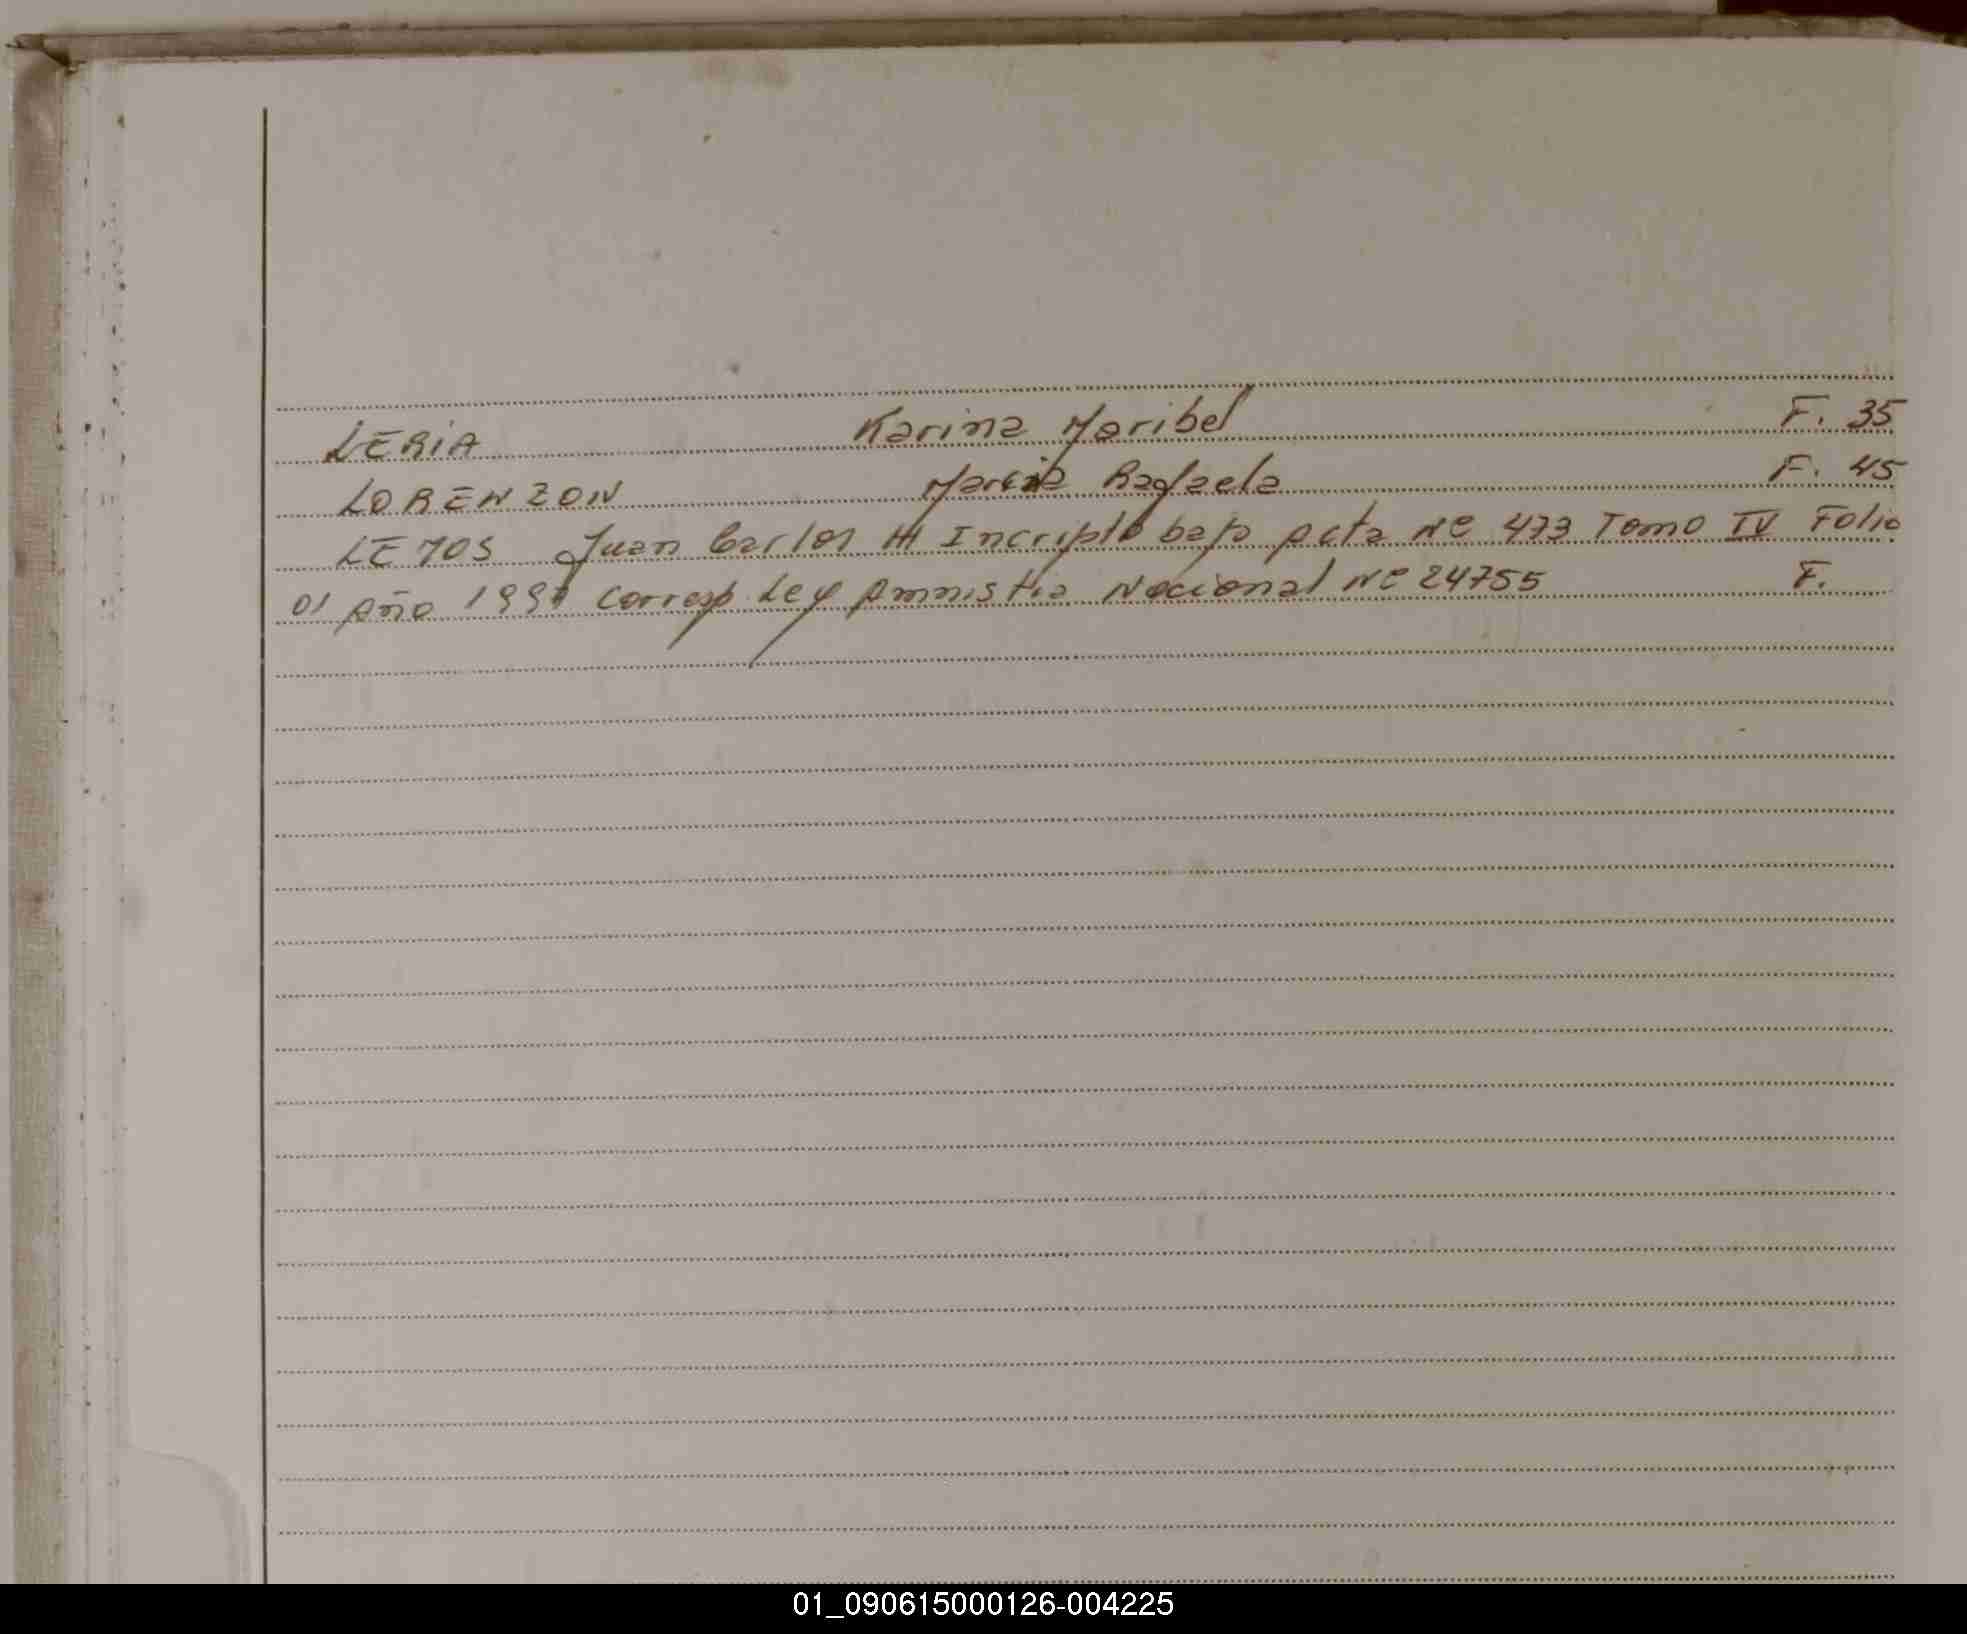 LERIA Karina Maribel F. 35
LORENZON María Rafaela F. 45
LEMOS Juan Carlos III Incripto bajo acta Nº 473 Tomo IV Folio
01 Año 1997 corresp Ley Amnistia Nacional Nº 24755 F.
01_090615000126-004225